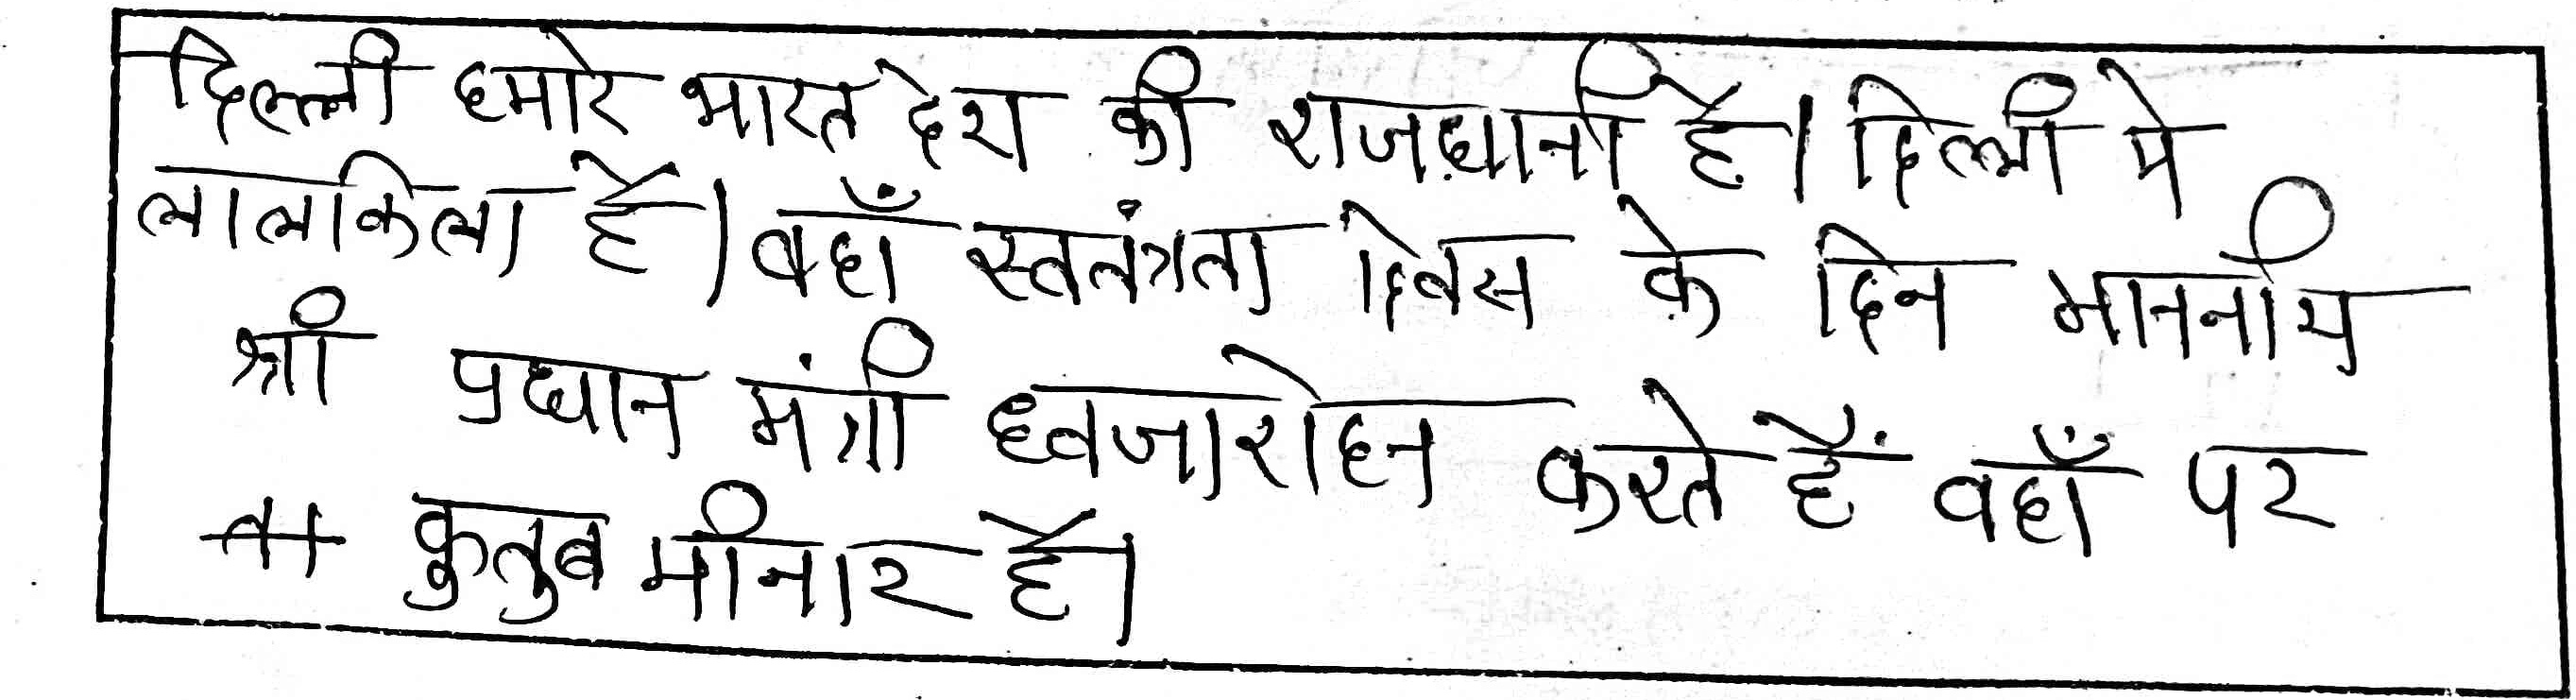 दिल्ली हमारे भारत देश की राजधानी है। दिल्ली मे
लालकिला है। वहाँ स्वतंत्रता दिवस के दिन माननीय
श्री प्रधान मंत्री ध्वजारोहन करते हैं वहाँ पर
कुतुब मीनार है।